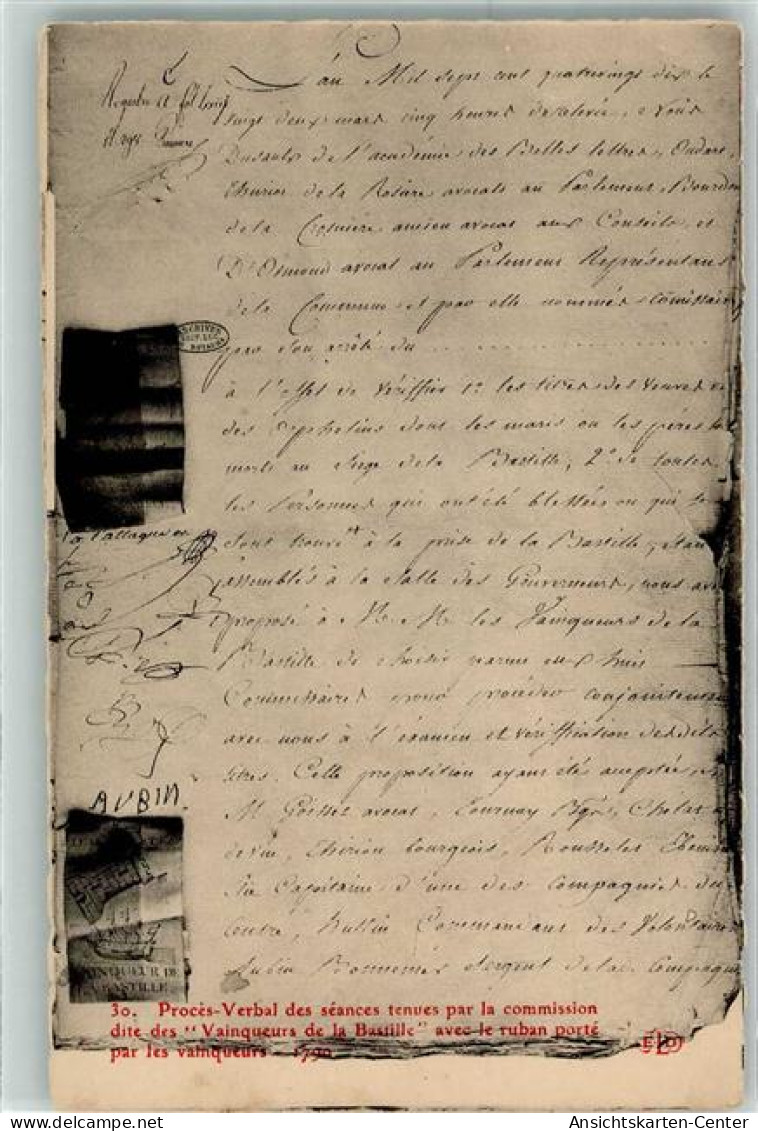 L'an Mil sept cent quatrevingt dix le
vingt deux mars cinq heures de relevée, Nous
Dusaulx de l'académie des Belles lettres, Oudart,
thuriot de la Rosiere avocats au Parlement, Bourdon
de la Crosnière ancien avocat aux Conseils, et
D'Osmond avocat au Parlement Représentans
de la Commune et par elle nommés Comissaires
par son arrêté du
ARCHIVES
à l'effet de vériffier 1º les titres des veuves et
des orphelins dont les maris ou les pères sont
morts au Siege de la Bastille, 2º de toutes
les Personnes qui ont été blessées ou qui se
sont trouvés à la prise de la Bastille, étant
à l'attaque
assemblés à la Salle des Gouverneurs, nous avons
proposé à M.M. les Vainqueurs de la
Bastille de choisir parmi eux huit
Commissaires pour procéder conjointement
avec nous à l'examen et vériffication desdits
titres. Cette proposition ayant été acceptée,
AUBIN
M Goisset avocat, Tournay
de vin, thirion bourgeois, Rousselet
Capitaine d'une des Compagnies du
Centre, hullin Commandant des Volontaires
Aubin Bonnemer Sergent de la Compagnie
VAINQUEUR DE
LA BASTILLE
30. Procès-Verbal des séances tenues par la commission
dite des "Vainqueurs de la Bastille" avec le ruban porté
par les vainqueurs - 1790
ELD
Ansichtskarten-Center